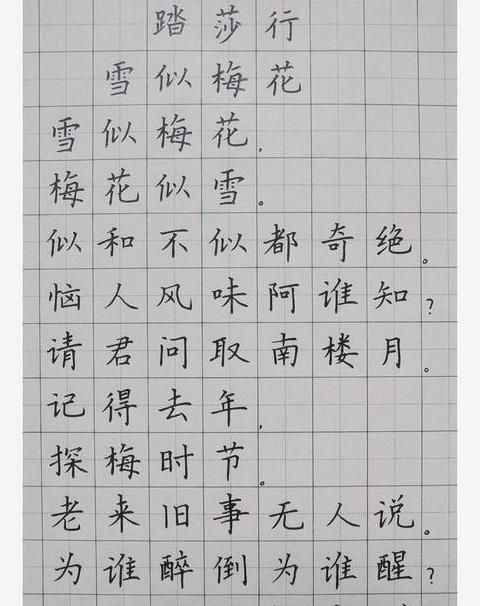 踏莎行
雪似梅花
雪似梅花,
梅花似雪。
似和不似都奇绝。
恼人风味阿谁知?
请君问取南楼月。
记得去年,
探梅时节。
老来旧事无人说。
为谁醉倒为谁醒?